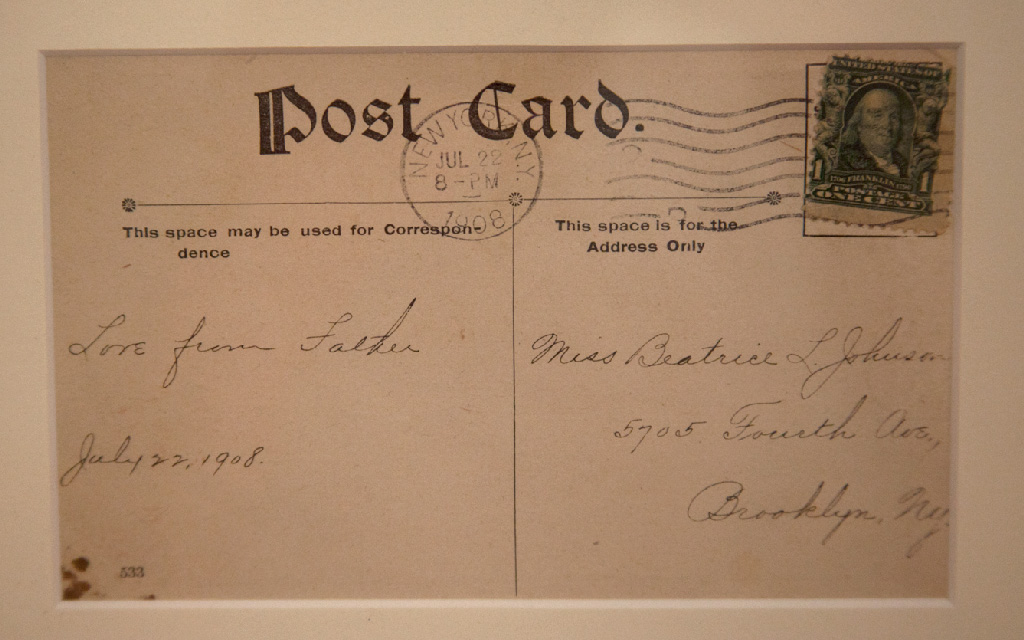 Post Card.
NEW YORK, N.Y.
JUL 22
8-PM
1908
UNITED STATES OF
AMERICA
1 FRANKLIN 1
POSTAGE
ONE CENT
This space may be used for Correspon-
dence
This space is for the
Address Only
Love from Father
July 22, 1908.
Miss Beatrice L Johnson
5705 Fourth Ave.,
Brooklyn, Ny
533